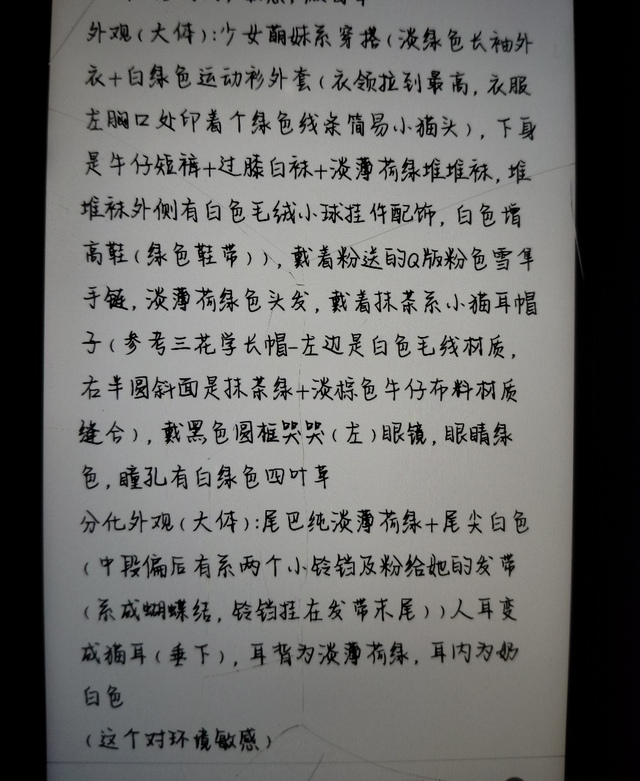 外观(大体):少女萌妹系穿搭(淡绿色长袖外
衣+白绿色运动衫外套(衣领拉到最高,衣服
左胸口处印着个绿色线条简易小猫头),下身
是牛仔短裤+过膝白袜+淡薄荷绿堆堆袜,堆
堆袜外侧有白色毛绒小球挂件配饰,白色增
高鞋(绿色鞋带)),戴着粉送的Q版粉色雪隼
手链,淡薄荷绿色头发,戴着抹茶系小猫耳帽
子(参考三花学长帽-左边是白色毛线材质,
右半圆斜面是抹茶绿+淡棕色牛仔布料材质
缝合),戴黑色圆框哭哭(左)眼镜,眼睛绿
色,瞳孔有白绿色四叶草
分化外观(大体):尾巴纯淡薄荷绿+尾尖白色
(中段偏后有系两个小铃铛及粉给她的发带
(系成蝴蝶结,铃铛挂在发带末尾))人耳变
成猫耳(垂下),耳背为淡薄荷绿,耳内为奶
白色
(这个对环境敏感)